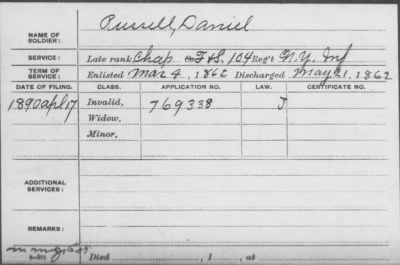 NAME OF SOLDIER: Russell, Daniel
SERVICE: Late rank Chap F&S, 104 Reg't N.Y. Inf
TERM OF SERVICE: Enlisted Mar 4, 1862 Discharged May 21, 1862
DATE OF FILING. CLASS. APPLICATION NO. LAW. CERTIFICATE NO.
1890 Apl 17 Invalid, 769338 J
Widow,
Minor,
ADDITIONAL SERVICES:
REMARKS:
Died , 1 , at